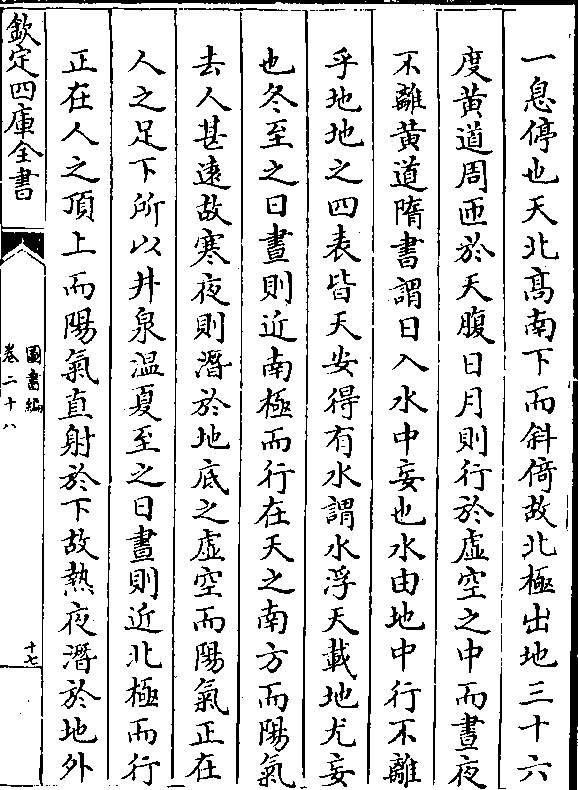 一息停也天北髙南下而斜倚故北極出地三十六
度黄道周匝於天腹日月則行於虚空之中而晝夜
不離黄道隋書謂日入水中妄也水由地中行不離
乎地地之四表皆天安得有水謂水浮天載地尤妄
也冬至之日晝則近南極而行在天之南方而陽氣
去人甚逺故寒夜則潛於地底之虚空而陽氣正在
人之足下所以井泉温夏至之日晝則近北極而行
正在人之頂上而陽氣直射於下故熱夜潛於地外
欽定四庫全書
圖書編
卷二十八
十七